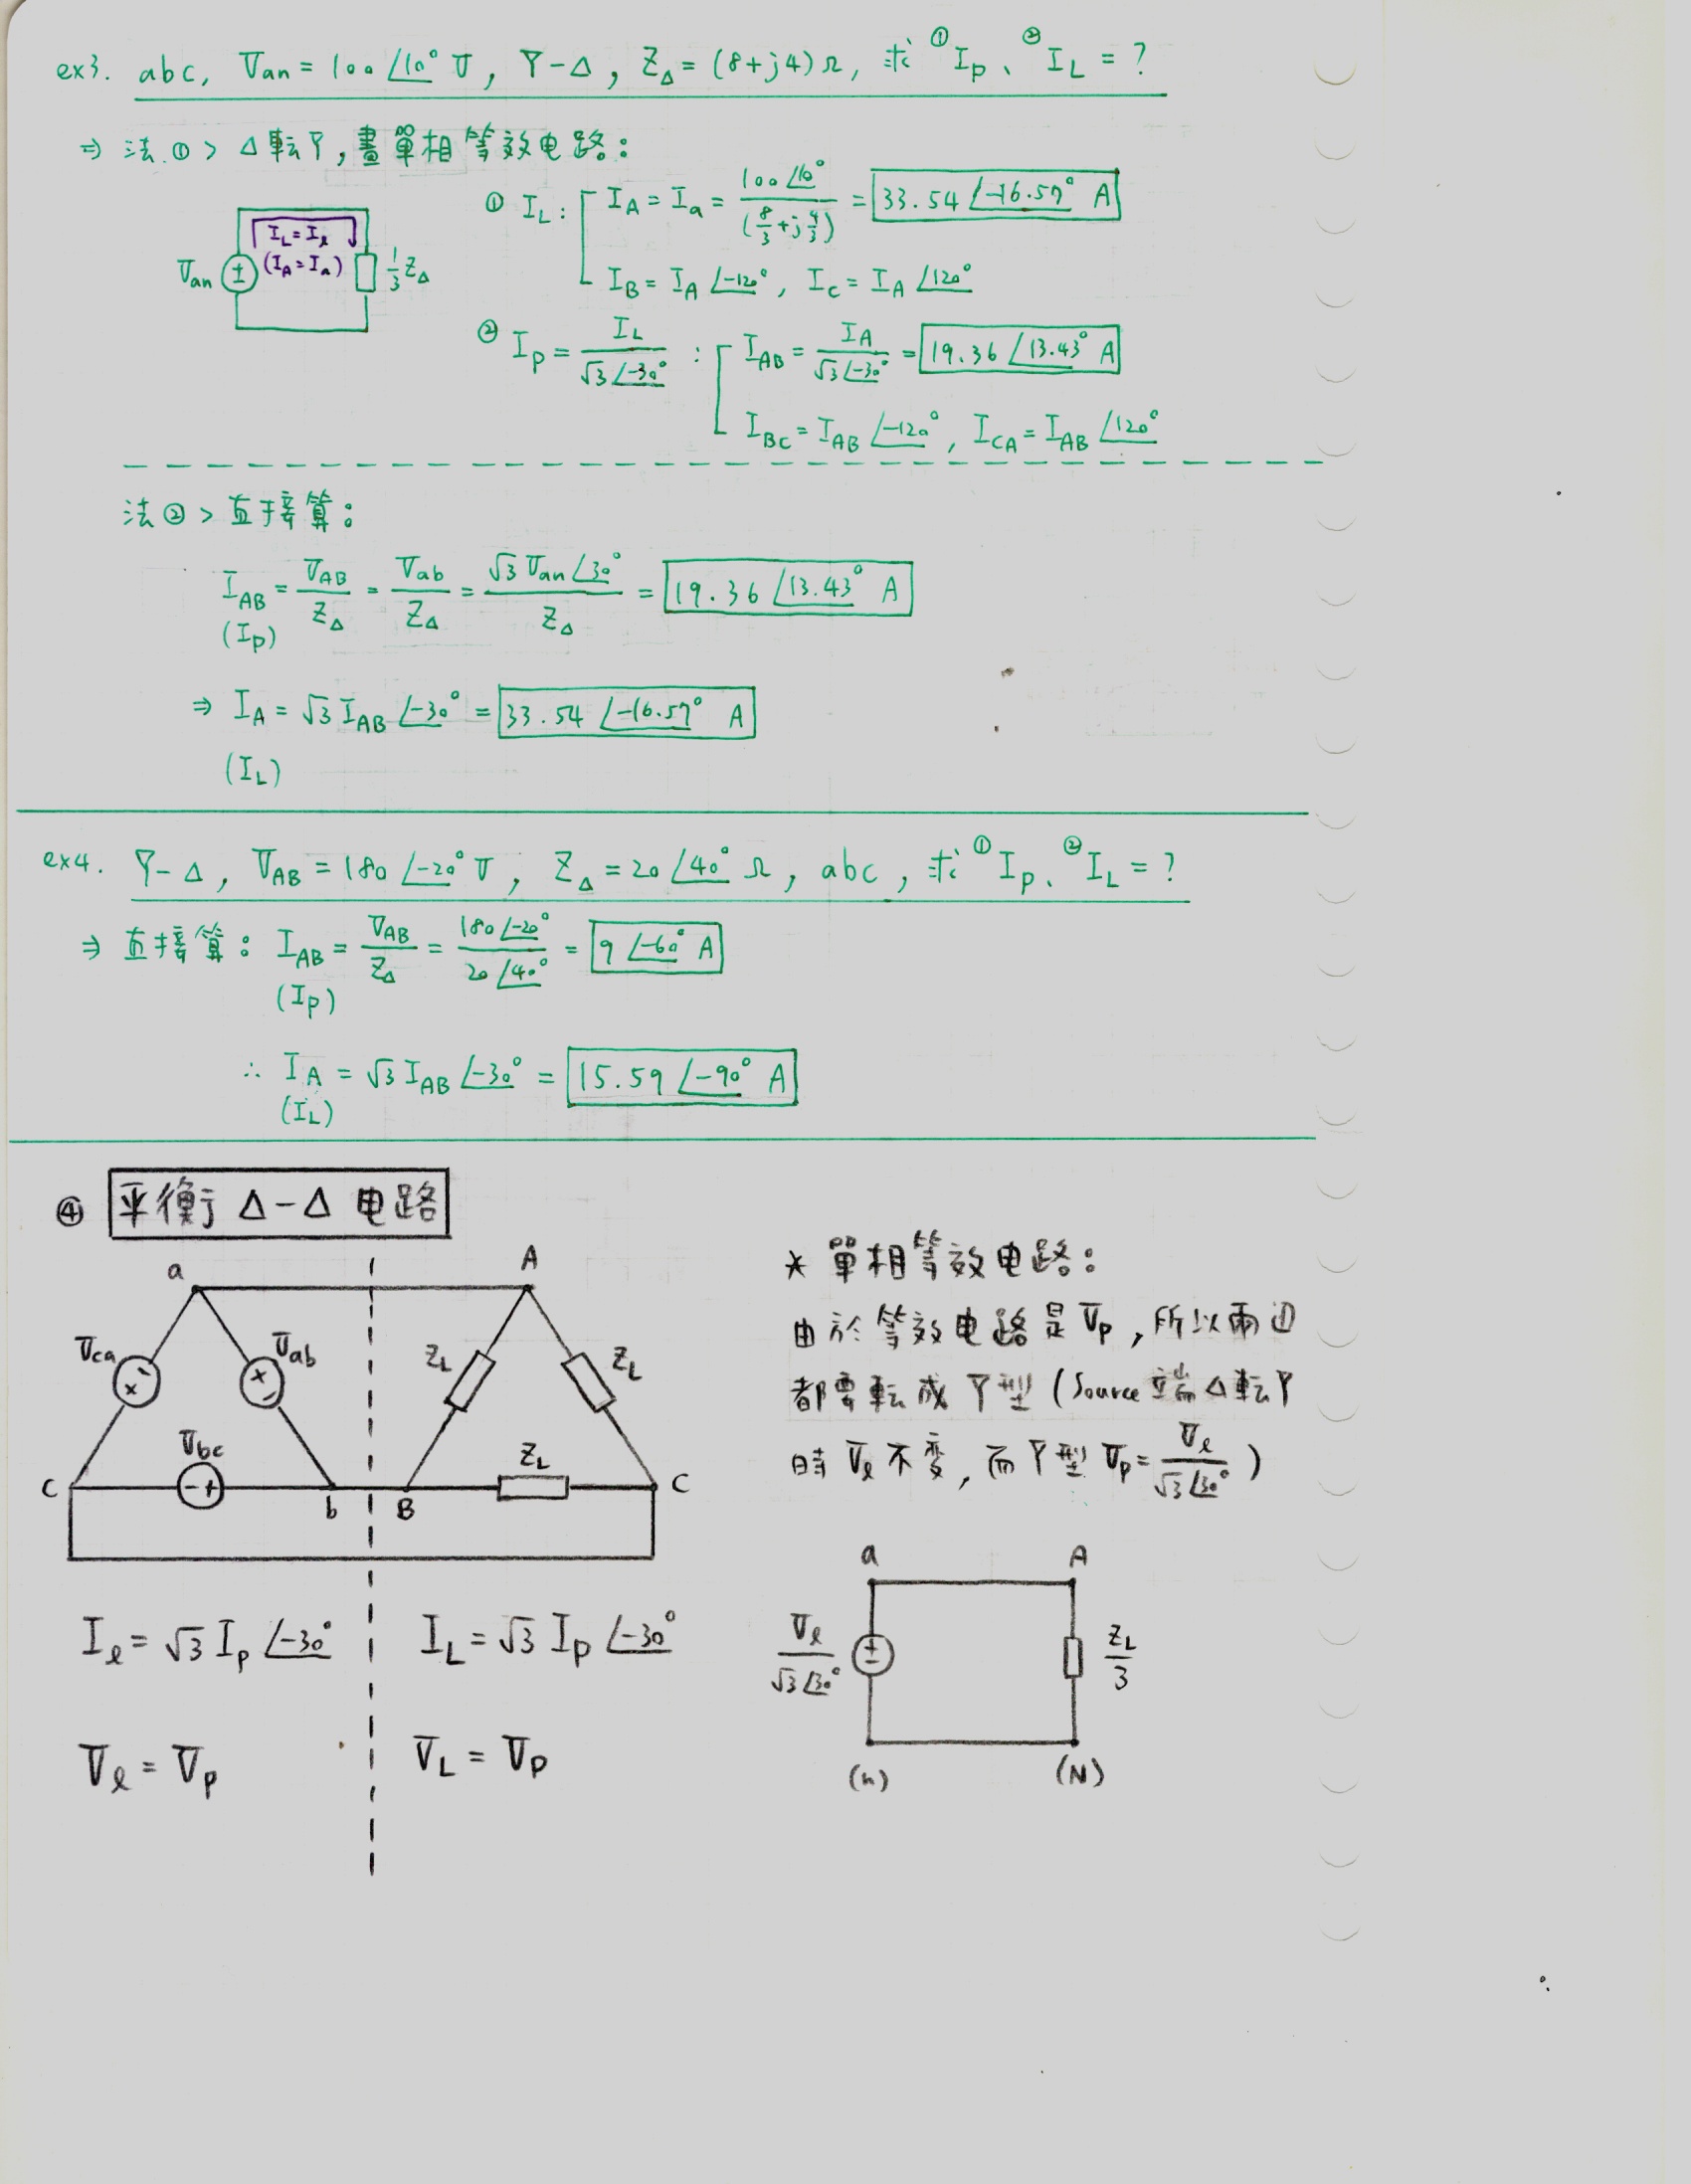 ex3. abc, Van = 100∠10° V, Y-Δ, ZΔ = (8+j4)Ω, 求 ①Ip、②IL = ?
⇒ 法① > Δ転Y, 畫單相等效电路:
IL = Iℓ
(IA = Ia)
Van
1/3 ZΔ
① IL: IA = Ia = 100∠10° / (8/3 + j4/3) = 33.54∠-16.57° A
IB = IA∠-120°, IC = IA∠120°
② Ip = IL / √3∠-30° : IAB = IA / √3∠-30° = 19.36∠13.43° A
IBC = IAB∠-120°, ICA = IAB∠120°
法② > 直接算:
IAB = VAB / ZΔ = Vab / ZΔ = √3 Van∠30° / ZΔ = 19.36∠13.43° A
(Ip)
⇒ IA = √3 IAB∠-30° = 33.54∠-16.57° A
(IL)
ex4. Y-Δ, VAB = 180∠-20° V, ZΔ = 20∠40° Ω, abc, 求 ①Ip、②IL = ?
⇒ 直接算: IAB = VAB / ZΔ = 180∠-20° / 20∠40° = 9∠-60° A
(Ip)
∴ IA = √3 IAB∠-30° = 15.59∠-90° A
(IL)
④ 平衡 Δ-Δ 电路
a A
Vca Vab ZL ZL
Vbc ZL
c b B C
Iℓ = √3 Ip∠-30°
IL = √3 Ip∠-30°
Vℓ = Vp
VL = Vp
* 單相等效电路:
由於等效电路是 Vp, 所以兩辺
都要転成Y型 (Source 端Δ転Y
時 Vℓ 不変, 而Y型 Vp = Vℓ / √3∠30° )
a A
Vℓ / √3∠30°
ZL / 3
(n) (N)